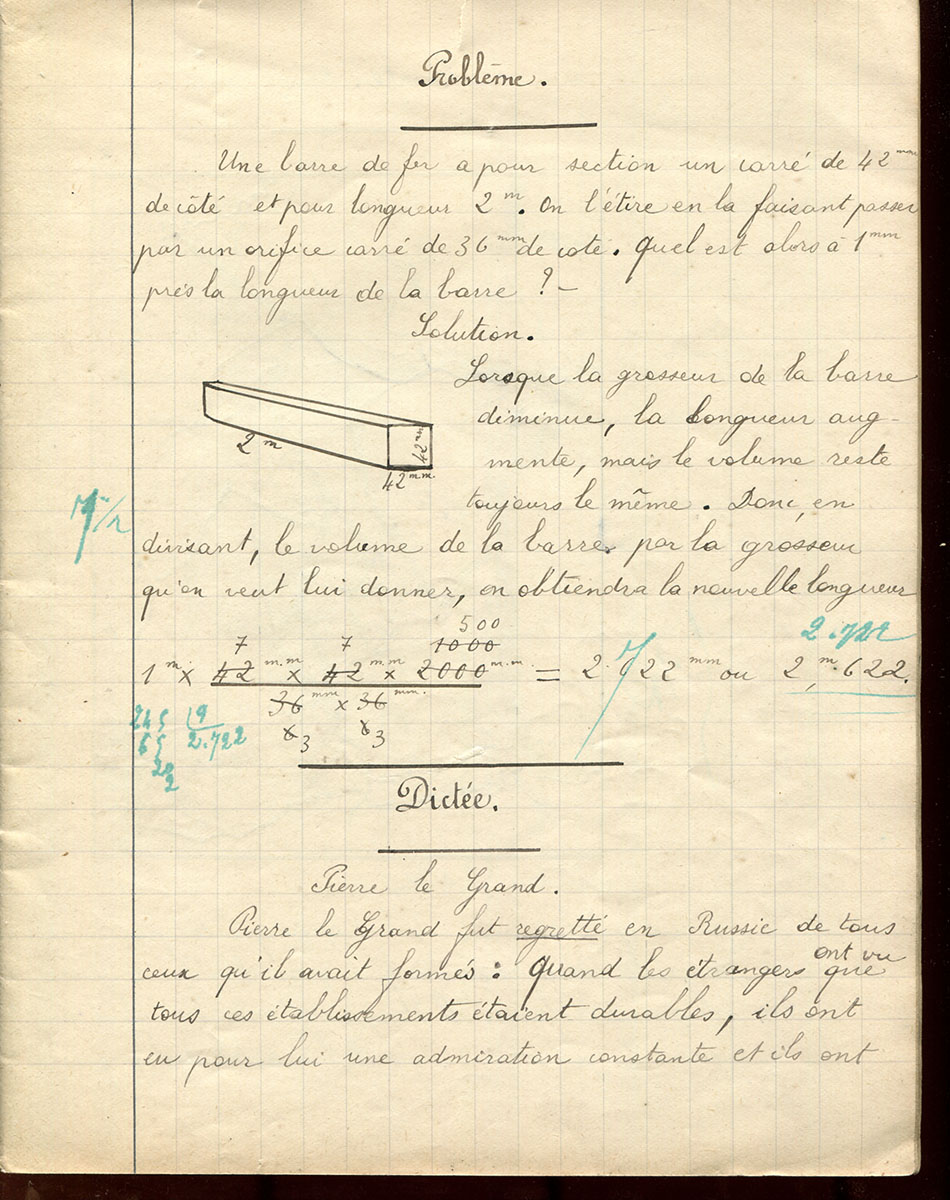 Problème.
Une barre de fer a pour section un carré de 42 mm
de côté et pour longueur 2 m. On l'étire en la faisant passer
par un orifice carré de 36 mm de coté. Quel est alors à 1 mm
près la longueur de la barre ? –
Solution.
Lorsque la grosseur de la barre
diminue, la longueur aug-
mente, mais le volume reste
toujours le même. Donc, en
2 m
42 mm
42 m.m.
divisant, le volume de la barre par la grosseur
qu'on veut lui donner, on obtiendra la nouvelle longueur
500
7 7 1000 2.722
1 m × 42 m.m × 42 m.m × 2000 m.m. = 2.622 mm ou 2 m. 622.
36 mm × 36 mm.
6 3 6 3
245 9
65 2.722
20
2
Dictée.
Pierre le Grand.
Pierre le Grand fut regretté en Russie de tous
ceux qu'il avait formés : Quand les étrangers ont vu que
tous ces établissements étaient durables, ils ont
eu pour lui une admiration constante et ils ont